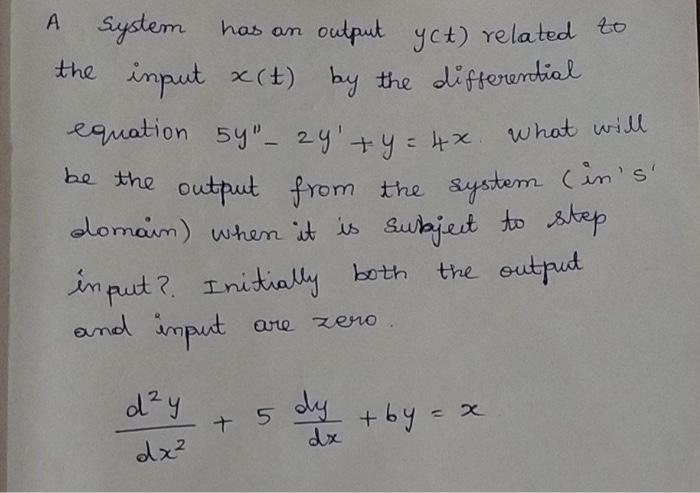 A system has an output y(t) related to
the input x(t) by the differential
equation 5y" - 2y' + y = 4x. what will
be the output from the system (in 's'
domain) when it is subject to step
input?. Initially both the output
and input are zero.
d²y/dx² + 5 dy/dx + 6y = x